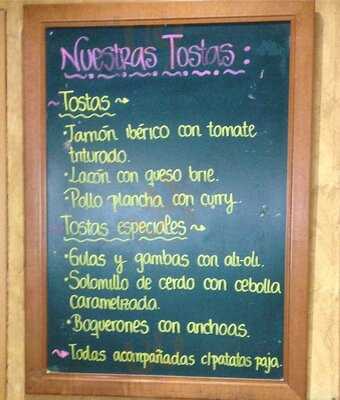 Nuestras Tostas:
Tostas
• Jamón ibérico con tomate
triturado.
• Lacón con queso brie.
• Pollo plancha con curry.
Tostas especiales
• Gulas y gambas con ali-oli.
• Solomillo de cerdo con cebolla
caramelizada.
• Boquerones con anchoas.
Todas acompañadas c/patatas paja.